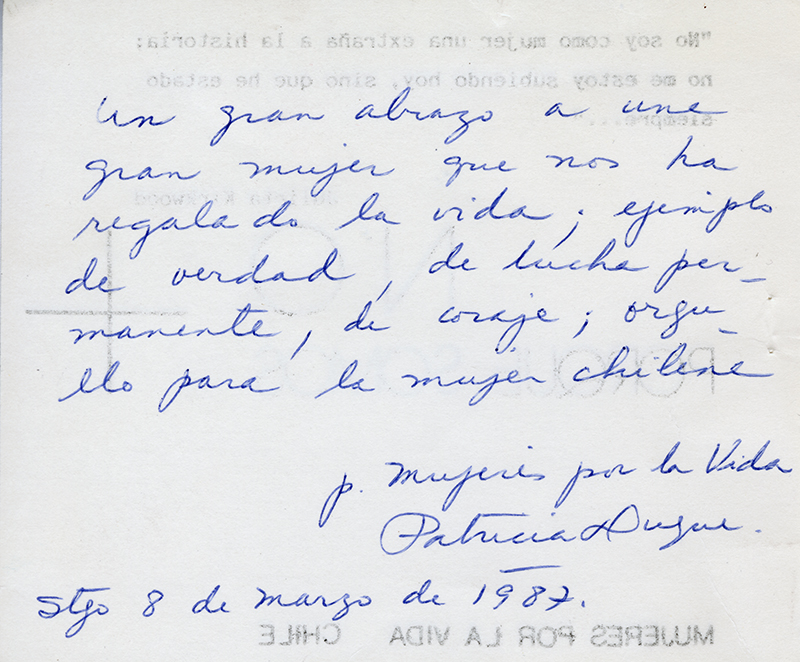 "No soy como mujer una extraña a la historia:
no me estoy subiendo hoy, sino que he estado
siempre..."
Julieta Kirkwood
NO +
PORQUE SOMOS +
Un gran abrazo a una
gran mujer que nos ha
regalado la vida; ejemplo
de verdad, de lucha per-
manente, de coraje; orgu-
llo para la mujer chilena
p. Mujeres por la Vida
Patricia Duque.
Stgo 8 de marzo de 1987.
MUJERES POR LA VIDA CHILE